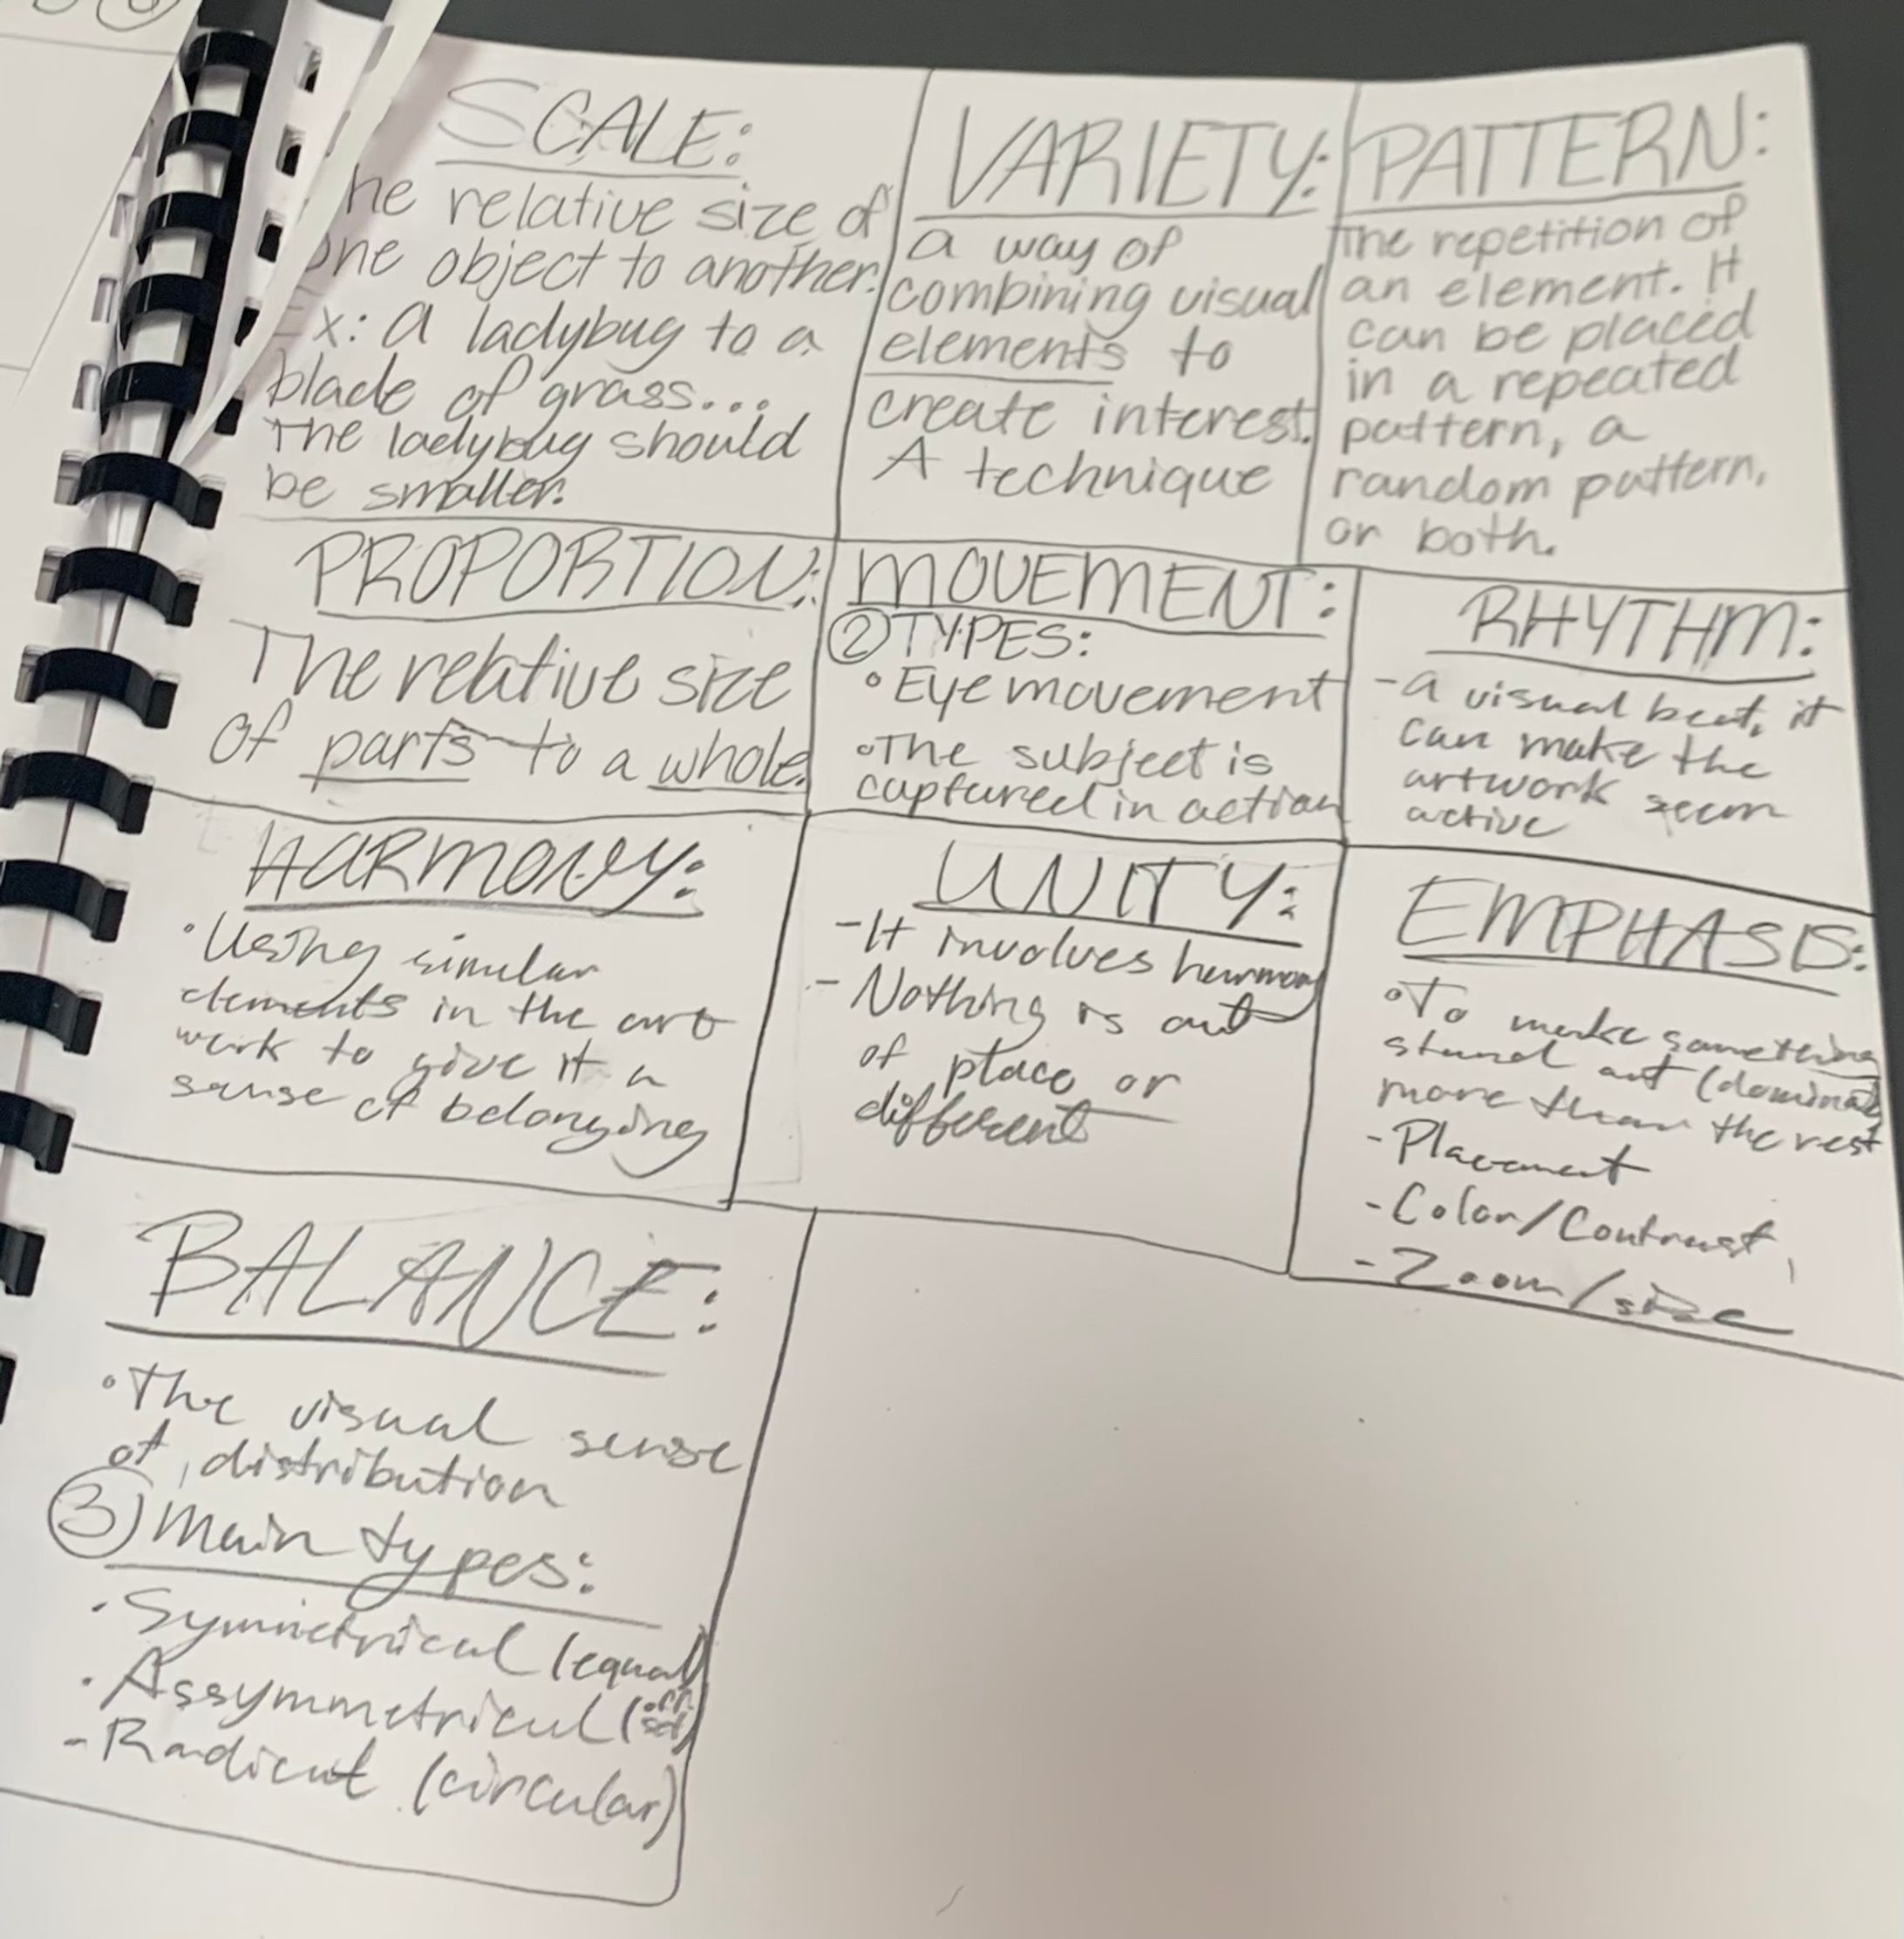 SCALE:
he relative size of
one object to another.
Ex: A ladybug to a
blade of grass...
The ladybug should
be smaller.
VARIETY:
a way of
combining visual
elements to
create interest.
A technique
PATTERN:
The repetition of
an element. It
can be placed
in a repeated
pattern, a
random pattern,
or both.
PROPORTION:
The relative size
of parts to a whole.
MOVEMENT:
② TYPES:
• Eye movement
• The subject is
captured in action
RHYTHM:
- a visual beat, it
can make the
artwork seem
active
HARMONY:
• Using similar
elements in the art
work to give it a
sense of belonging
UNITY:
- It involves harmony
- Nothing is out
of place or
different
EMPHASIS:
• To make something
stand out (dominate)
more than the rest
- Placement
- Color/Contrast
- Zoom/size
BALANCE:
• The visual sense
of distribution
③ Main types:
• Symmetrical (equal)
• Assymmetrical (off set)
- Radient (circular)